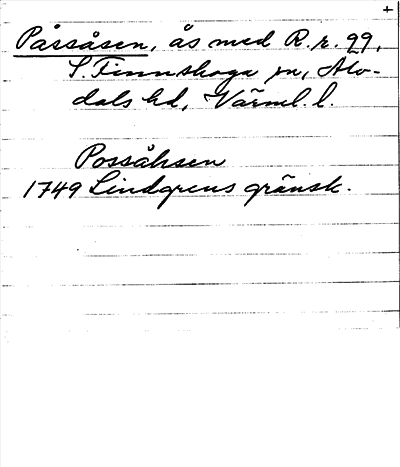 +
Påssåsen, ås med R.r. 99,
S. Finnskoga sn, Älv-
dals hd, Värml. l.
Possåhsen
1749 Lindgrens gränsk.